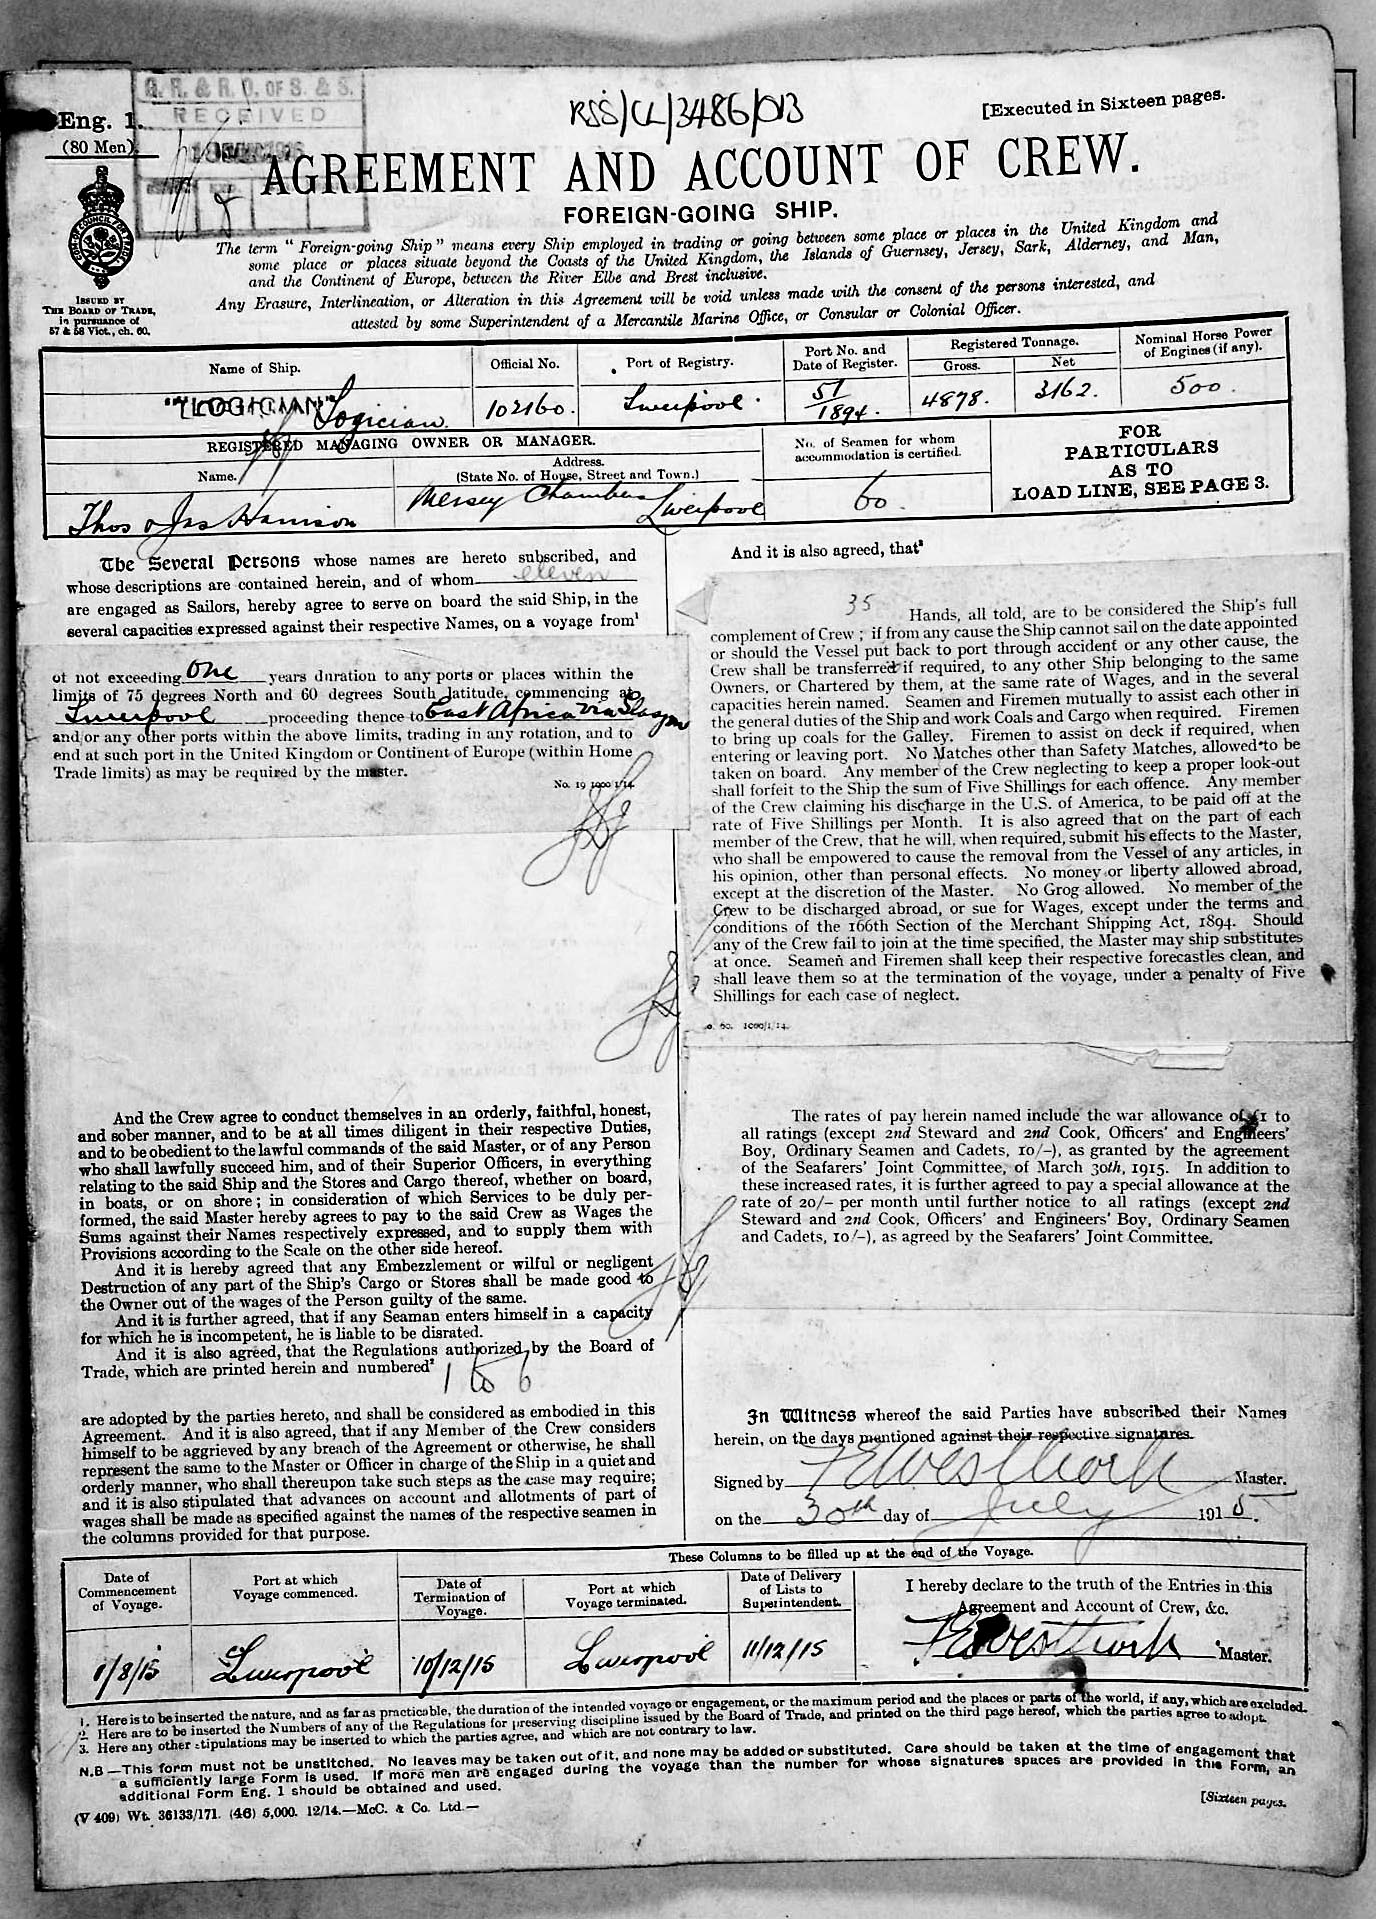 G. R. & R. O. OF S. & S.
RECEIVED
RSS/CL/3486/013
[Executed in Sixteen pages.
Eng. 1.
(80 Men)
AGREEMENT AND ACCOUNT OF CREW.
FOREIGN-GOING SHIP.
The term "Foreign-going Ship" means every Ship employed in trading or going between some place or places in the United Kingdom and
some place or places situate beyond the Coasts of the United Kingdom, the Islands of Guernsey, Jersey, Sark, Alderney, and Man,
and the Continent of Europe, between the River Elbe and Brest inclusive.
Any Erasure, Interlineation, or Alteration in this Agreement will be void unless made with the consent of the persons interested, and
attested by some Superintendent of a Mercantile Marine Office, or Consular or Colonial Officer.
ISSUED BY
THE BOARD OF TRADE,
in pursuance of
57 & 58 Vict., ch. 60.
Name of Ship.
Official No.
Port of Registry.
Port No. and
Date of Register.
Registered Tonnage.
Gross.
Net
Nominal Horse Power
of Engines (if any).
"LOGICIAN"
Logician
102160.
Liverpool.
51/1894.
4878.
3162.
500.
REGISTERED MANAGING OWNER OR MANAGER.
Name.
Address.
(State No. of House, Street and Town.)
No. of Seamen for whom
accommodation is certified.
FOR
PARTICULARS
AS TO
LOAD LINE, SEE PAGE 3.
Thos & Jas Harrison
Mersey Chambers
Liverpool
60.
The Several Persons whose names are hereto subscribed, and
whose descriptions are contained herein, and of whom eleven
are engaged as Sailors, hereby agree to serve on board the said Ship, in the
several capacities expressed against their respective Names, on a voyage from¹
of not exceeding One years duration to any ports or places within the
limits of 75 degrees North and 60 degrees South latitude, commencing at
Liverpool proceeding thence to East Africa via Glasgow
and/or any other ports within the above limits, trading in any rotation, and to
end at such port in the United Kingdom or Continent of Europe (within Home
Trade limits) as may be required by the master.
No. 19 1000 1/14.
And the Crew agree to conduct themselves in an orderly, faithful, honest,
and sober manner, and to be at all times diligent in their respective Duties,
and to be obedient to the lawful commands of the said Master, or of any Person
who shall lawfully succeed him, and of their Superior Officers, in everything
relating to the said Ship and the Stores and Cargo thereof, whether on board,
in boats, or on shore; in consideration of which Services to be duly per-
formed, the said Master hereby agrees to pay to the said Crew as Wages the
Sums against their Names respectively expressed, and to supply them with
Provisions according to the Scale on the other side hereof.
And it is hereby agreed that any Embezzlement or wilful or negligent
Destruction of any part of the Ship's Cargo or Stores shall be made good to
the Owner out of the wages of the Person guilty of the same.
And it is further agreed, that if any Seaman enters himself in a capacity
for which he is incompetent, he is liable to be disrated.
And it is also agreed, that the Regulations authorized by the Board of
Trade, which are printed herein and numbered²
1 to 6
are adopted by the parties hereto, and shall be considered as embodied in this
Agreement. And it is also agreed, that if any Member of the Crew considers
himself to be aggrieved by any breach of the Agreement or otherwise, he shall
represent the same to the Master or Officer in charge of the Ship in a quiet and
orderly manner, who shall thereupon take such steps as the case may require;
and it is also stipulated that advances on account and allotments of part of
wages shall be made as specified against the names of the respective seamen in
the columns provided for that purpose.
And it is also agreed, that³
35 Hands, all told, are to be considered the Ship's full
complement of Crew; if from any cause the Ship cannot sail on the date appointed
or should the Vessel put back to port through accident or any other cause, the
Crew shall be transferred if required, to any other Ship belonging to the same
Owners, or Chartered by them, at the same rate of Wages, and in the several
capacities herein named. Seamen and Firemen mutually to assist each other in
the general duties of the Ship and work Coals and Cargo when required. Firemen
to bring up coals for the Galley. Firemen to assist on deck if required, when
entering or leaving port. No Matches other than Safety Matches, allowed to be
taken on board. Any member of the Crew neglecting to keep a proper look-out
shall forfeit to the Ship the sum of Five Shillings for each offence. Any member
of the Crew claiming his discharge in the U.S. of America, to be paid off at the
rate of Five Shillings per Month. It is also agreed that on the part of each
member of the Crew, that he will, when required, submit his effects to the Master,
who shall be empowered to cause the removal from the Vessel of any articles, in
his opinion, other than personal effects. No money or liberty allowed abroad,
except at the discretion of the Master. No Grog allowed. No member of the
Crew to be discharged abroad, or sue for Wages, except under the terms and
conditions of the 166th Section of the Merchant Shipping Act, 1894. Should
any of the Crew fail to join at the time specified, the Master may ship substitutes
at once. Seamen and Firemen shall keep their respective forecastles clean, and
shall leave them so at the termination of the voyage, under a penalty of Five
Shillings for each case of neglect.
o. 60. 1000/1/14.
The rates of pay herein named include the war allowance of £1 to
all ratings (except 2nd Steward and 2nd Cook, Officers' and Engineers'
Boy, Ordinary Seamen and Cadets, 10/-), as granted by the agreement
of the Seafarers' Joint Committee, of March 30th, 1915. In addition to
these increased rates, it is further agreed to pay a special allowance at the
rate of 20/- per month until further notice to all ratings (except 2nd
Steward and 2nd Cook, Officers' and Engineers' Boy, Ordinary Seamen
and Cadets, 10/-), as agreed by the Seafarers' Joint Committee.
In Witness whereof the said Parties have subscribed their Names
herein, on the days mentioned against their respective signatures.
Signed by F E Westhorp Master.
on the 30th day of July 1915.
These Columns to be filled up at the end of the Voyage.
Date of
Commencement
of Voyage.
Port at which
Voyage commenced.
Date of
Termination of
Voyage.
Port at which
Voyage terminated.
Date of Delivery
of Lists to
Superintendent.
I hereby declare to the truth of the Entries in this
Agreement and Account of Crew, &c.
1/8/15
Liverpool
10/12/15
Liverpool
11/12/15
Master.
1. Here is to be inserted the nature, and as far as practicable, the duration of the intended voyage or engagement, or the maximum period and the places or parts of the world, if any, which are excluded.
2. Here are to be inserted the Numbers of any of the Regulations for preserving discipline issued by the Board of Trade, and printed on the third page hereof, which the parties agree to adopt.
3. Here any other stipulations may be inserted to which the parties agree, and which are not contrary to law.
N.B—This form must not be unstitched. No leaves may be taken out of it, and none may be added or substituted. Care should be taken at the time of engagement that
a sufficiently large Form is used. If more men are engaged during the voyage than the number for whose signatures spaces are provided in this Form, an
additional Form Eng. 1 should be obtained and used.
(V 409) Wt. 36133/171. (46) 5,000. 12/14.—McC. & Co. Ltd.—
[Sixteen pages.